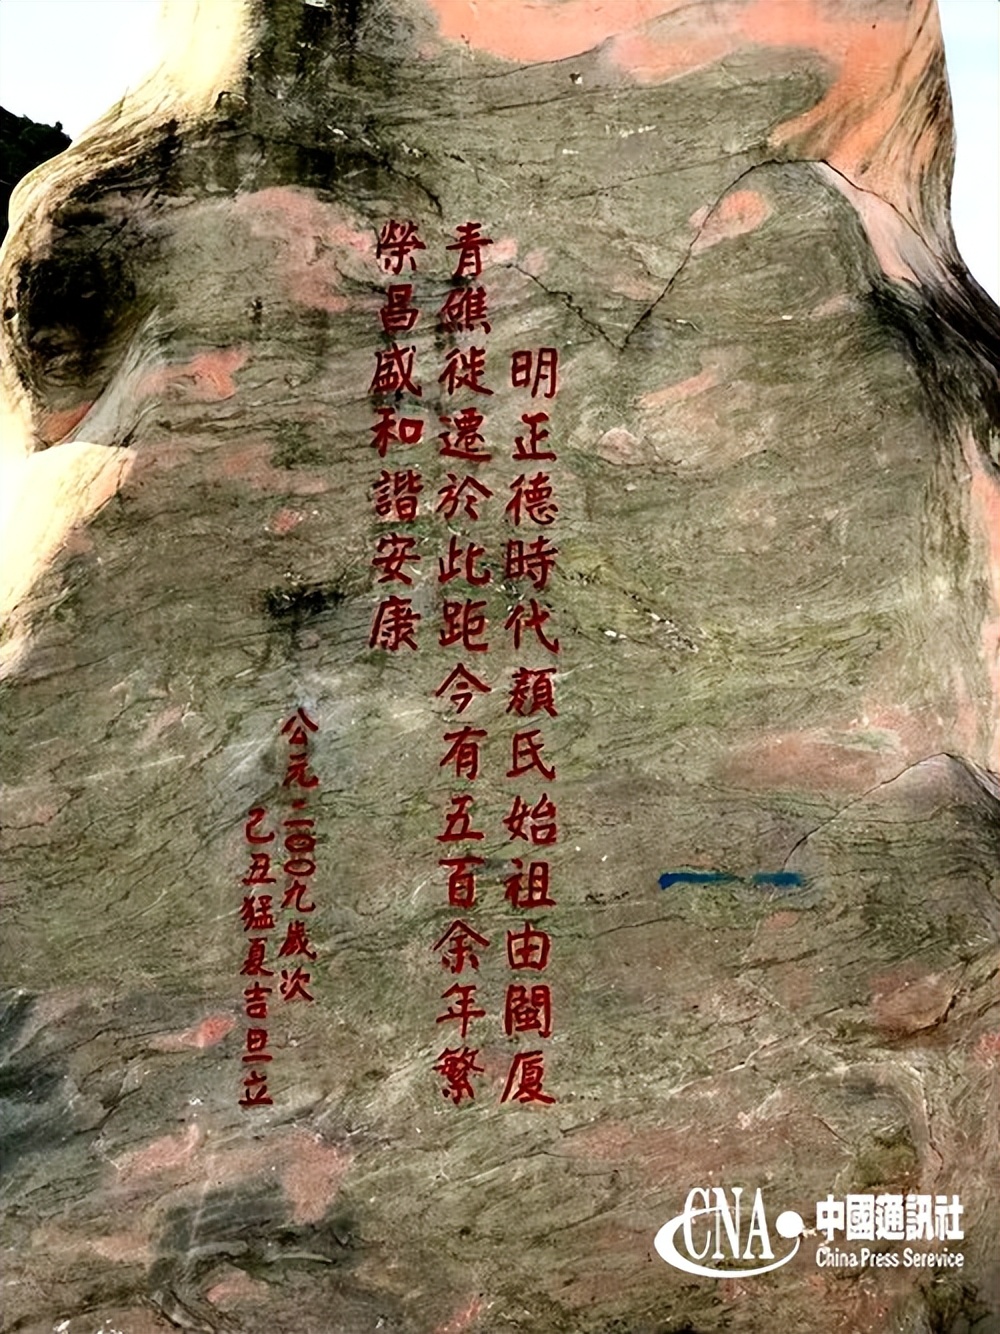 明正德時代顏氏始祖由閩厦
青礁徙遷於此距今有五百余年繁
榮昌盛和諧安康
公元二〇〇九歲次
己丑猛夏吉旦立
CNA 中國通訊社
China Press Serevice